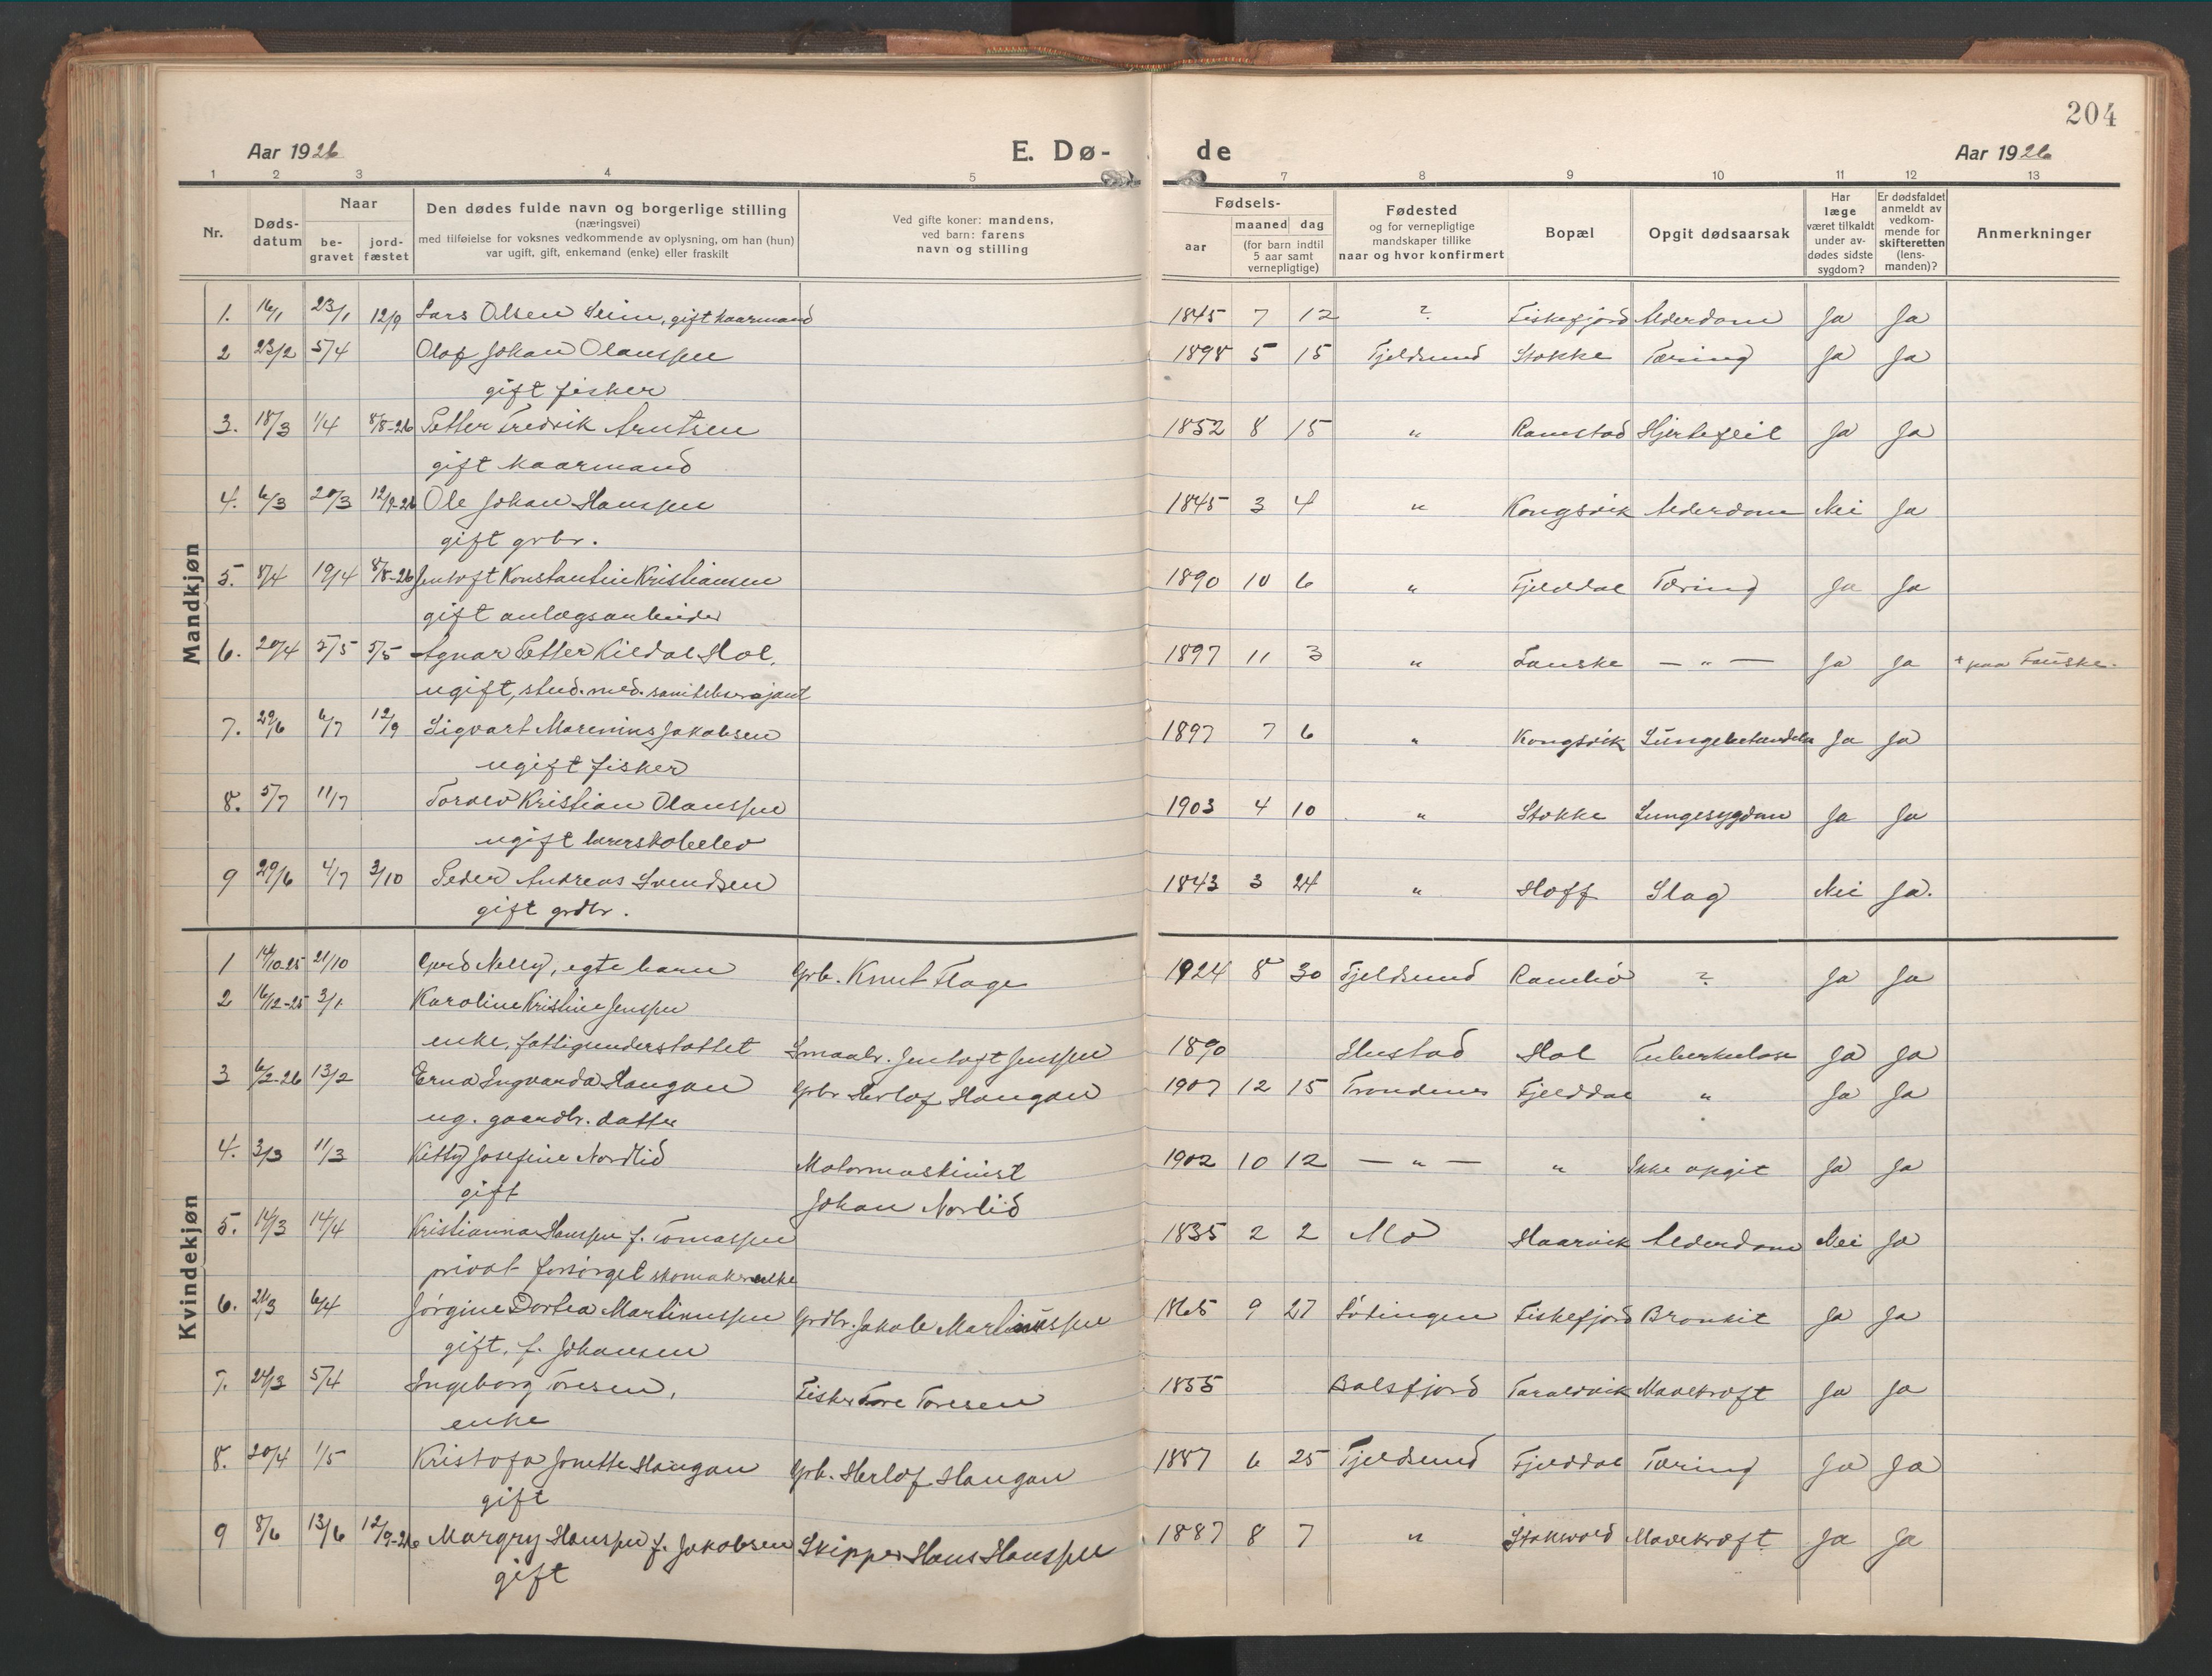 204
Aar 1926
E. Dø-
de
Aar 1926
1 2 3 4 5 7 8 9 10 11 12 13
Nr.
Døds-
datum
Naar
be-
gravet
jord-
fæstet
Den dødes fulde navn og borgerlige stilling
(næringsvei)
med tilføielse for voksnes vedkommende av oplysning, om han (hun)
var ugift, gift, enkemand (enke) eller fraskilt
Ved gifte koner: mandens,
ved barn: farens
navn og stilling
Fødsels-
aar
maaned dag
(for barn indtil
5 aar samt
vernepligtige)
Fødested
og for vernepligtige
mandskaper tillike
naar og hvor konfirmert
Bopæl
Opgit dødsaarsak
Har
læge
været tilkaldt
under av-
dødes sidste
sygdom?
Er dødsfaldet
anmeldt av
vedkom-
mende for
skifteretten
(lens-
manden)?
Anmerkninger
Mandkjøn
1. 16/1 23/1 12/9 Lars Olsen Seim, gift kaarmand 1845 7 12 ? Fiskefjord Alderdom Ja Ja
2 23/2 5/4 Olaf Johan Olaussen 1898 5 15 Tjeldsund Stokke Tæring Ja Ja
gift fisker
3. 18/3 1/4 8/8-26 Petter Fredrik Arntsen 1852 8 15 " Ramstad Hjertefeil Ja Ja
gift kaarmand
4. 6/3 20/3 12/9-26 Ole Johan Hanssen 1845 3 4 " Kongsvik Alderdom Nei Ja
gift grbr.
5. 8/4 19/4 8/8-26 Jentoft Konstantin Kristiansen 1890 10 6 " Fjelddal Tæring Ja Ja
gift anlægsarbeider
6. 20/4 5/5 5/5 Agnar Petter Kildal Hol, 1897 11 3 " Fauske — " — Ja Ja + paa Fauske.
ugift, stud. med. sanitetsersjant
7. 29/6 6/7 12/9 Sigvart Marenius Jakobsen 1897 7 6 " Kongsvik Ja Ja
ugift fisker
8. 5/7 11/7 Toralv Kristian Olaussen 1903 4 10 " Stokke Lungesygdom Ja Ja
ugift lærerskoleelev
9 29/6 4/7 3/10 Peder Andreas Svendsen 1843 3 24 " Hoff Slag Nei Ja.
gift grdbr.
Kvindekjøn
1 14/10-25 21/10 Gerd Nelly, egte barn Grb. Knut Flage 1924 8 30 Tjeldsund Rambø ? Ja Ja
2 16/12-25 3/1 Karoline Kristine Jenssen
enke, fattigunderstøttet Smaabr. Jentoft Jenssen 1890 Hustad Hol Tuberkulose Ja Ja
3 6/2-26 13/2 Erna Ingvarda Haugan Grbr Herlof Haugan 1907 12 15 Trondenes Fjelddal " Ja Ja
ug. gaardbr. datter
4. 3/3 11/3 Kitty Josefine Nordlid Motormaskinist 1902 10 12 — " — " Ikke opgit Ja Ja
gift Johan Norlid
5. 14/3 14/4 Kristianna Hanssen f. Tomassen 1835 2 2 Mo Haarvik Alderdom Nei Ja
privat forsørget skomakerenke
6. 21/3 6/4 Jørgine Dortea Martinussen Grdbr. Jakob Martinussen 1865 9 27 Lødingen Fiskefjord Bronkit Ja Ja
gift. f. Johansen
7. 24/3 5/4 Ingeborg Toresen, Fisker Tore Toresen 1855 Balsfjord Taraldvik Mavekræft Ja Ja
enke
8. 20/4 1/5 Kristofa Jonette Haugan Grb. Herlof Haugan 1887 6 25 Tjeldsund Fjelddal Tæring Ja Ja
gift
9 8/6 13/6 12/9-26 Margry Hanssen f. Jakobsen Skipper Hans Hanssen 1887 8 7 " Stokvold Mavekræft Ja Ja
gift